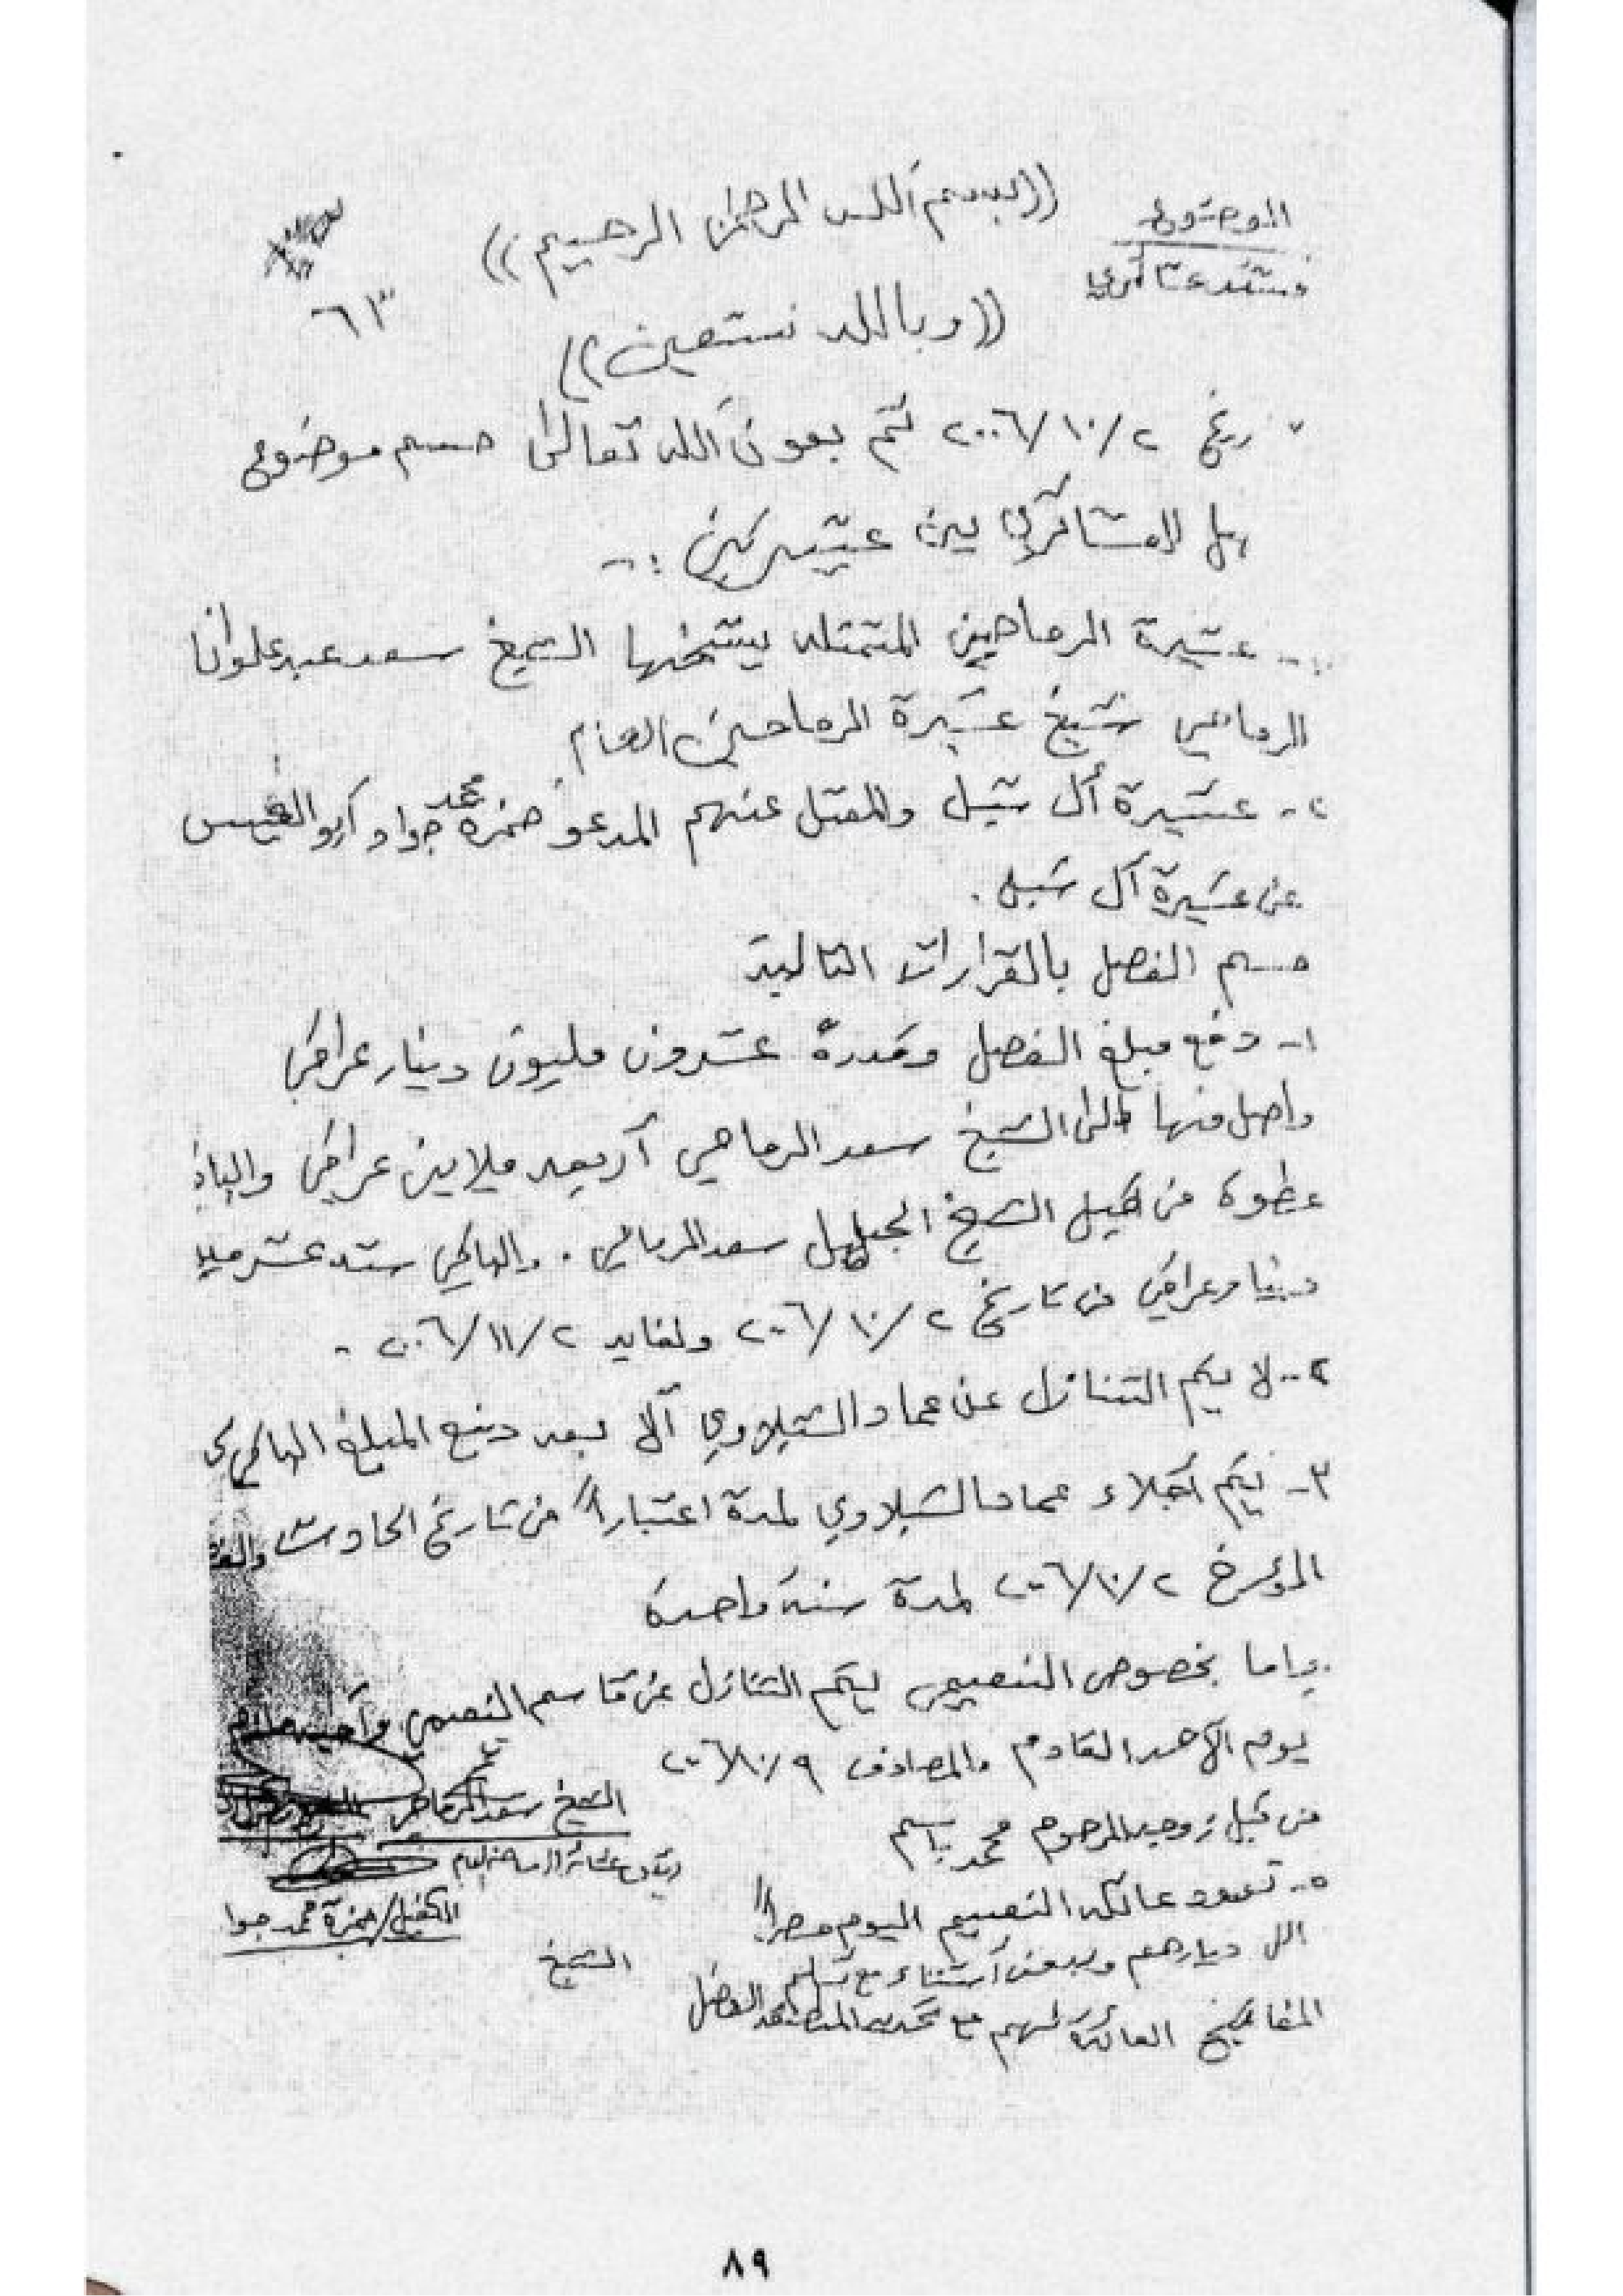 الموضوع
سند عشائري
((بسم الله الرحمن الرحيم))
٦٣
((وبالله نستعين))
ريخ ٢/١٠/٢٠٠٦ تم بعون الله تعالى حسم موضوع
بين عشيرتين :-
١- عشيرة الرماحيين المتمثله بشيخها الشيخ سعد عبد علوان
الرماحي شيخ عشيرة الرماحين العام
٢- عشيرة آل شبل والممثل عنهم المدعو حمزه محمد جواد
عن عشيرة آل شبل .
حسم الفصل بالقرارات التالية
١- دفع مبلغ الفصل وقدره عشرون مليون دينار عراقي
واصل منها الى الشيخ سعد الرماحي أربعه ملايين عراقي
عطوه من قبل الشيخ الجليل سعد الرماحي . والباقي سته عشر
دينار عراقي من تاريخ ٢/١٠/٢٠٠٦ ولغايه ٢/١١/٢٠٠٦ -
٢- لا يتم التنازل عن عماد الشبلاوي ألا بعد دفع المبلغ الباقي
٣- يتم أجلاء عماد الشبلاوي لمدة اعتباراً من تاريخ الحادث
المؤرخ ٢/١٠/٢٠٠٦ لمدة سنه واحده
واما بخصوص النعيمي يتم التنازل عن قاسم النعيمي
يوم الأحد القادم والمصادف ٩/١٠/٢٠٠٦
من قبل زوجه المرحوم محمد باسم
٥- تعود عائله النعيم اليوم عصراً
الى ديارهم
المفاتيح العائده لهم
الشيخ سعد الرماحي
الكفيل / حمزة محمد جواد
الشيخ
٨٩